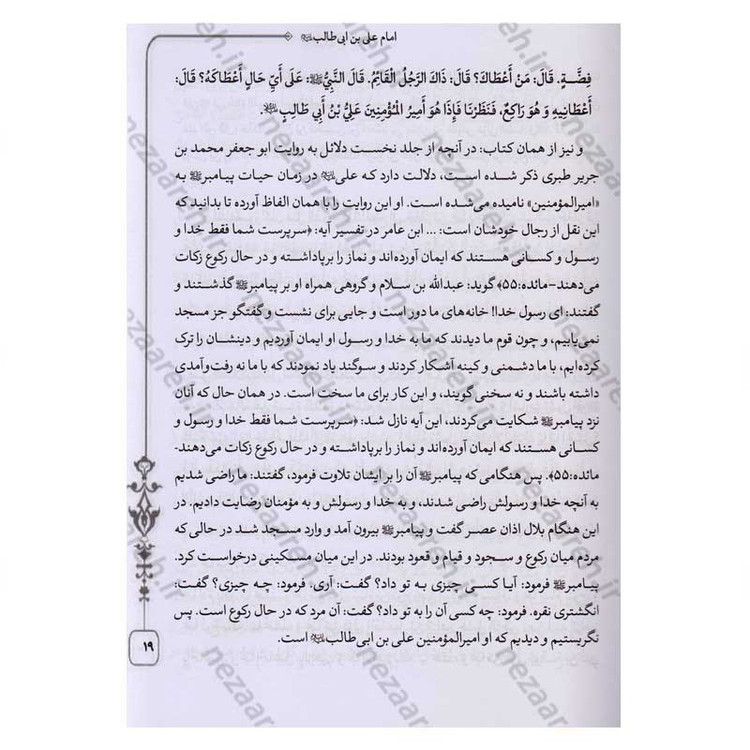 امام علی بن ابی‌طالبﷺ
فِضَّـةٍ. قَالَ: مَنْ أَعْطَاكَ؟ قَالَ: ذَاكَ الرَّجُلُ الْقَائِمُ. قَالَ النَّبِيُّﷺ: عَلَى أَيِّ حَالٍ أَعْطَاكَهُ؟ قَالَ:
أَعْطَانِيهِ وَ هُوَ رَاكِعٌ، فَنَظَرْنَا فَإِذَا هُوَ أَمِيرُ الْمُؤْمِنِينَ عَلِيُّ بْنُ أَبِي طَالِبٍ.
و نیز از همان کتاب: در آنچه از جلد نخست دلائل به روایت ابو جعفر محمد بن
جریر طبری ذکر شده است، دلالت دارد که علی در زمان حیات پیامبرﷺ به
«امیرالمؤمنین» نامیده می‌شده است. او این روایت را با همان الفاظ آورده تا بدانید که
این نقل از رجال خودشان است: ... ابن عامر در تفسیر آیه: ﴿سرپرست شما فقط خدا و
رسول و کسانی هستند که ایمان آورده‌اند و نماز را برپاداشته و در حال رکوع زکات
می‌دهند-مائده:۵۵﴾ گوید: عبدالله بن سلام و گروهی همراه او بر پیامبرﷺ گذشتند و
گفتند: ای رسول خدا! خانه‌های ما دور است و جایی برای نشست و گفتگو جز مسجد
نمی‌یابیم، و چون قوم ما دیدند که ما به خدا و رسول او ایمان آوردیم و دینشان را ترک
کرده‌ایم، با ما دشمنی و کینه آشکار کردند و سوگند یاد نمودند که با ما نه رفت‌وآمدی
داشته باشند و نه سخنی گویند، و این کار برای ما سخت است. در همان حال که آنان
نزد پیامبرﷺ شکایت می‌کردند، این آیه نازل شد: ﴿سرپرست شما فقط خدا و رسول و
کسانی هستند که ایمان آورده‌اند و نماز را برپاداشته و در حال رکوع زکات می‌دهند-
مائده:۵۵﴾. پس هنگامی که پیامبرﷺ آن را بر ایشان تلاوت فرمود، گفتند: ما راضی شدیم
به آنچه خدا و رسولش راضی شدند، و به خدا و رسولش و به مؤمنان رضایت دادیم. در
این هنگام بلال اذان عصر گفت و پیامبرﷺ بیرون آمد و وارد مسجد شد در حالی که
مردم میان رکوع و سجود و قیام و قعود بودند. در این میان مسکینی درخواست کرد.
پیامبرﷺ فرمود: آیا کسی چیزی به تو داد؟ گفت: آری. فرمود: چه چیزی؟ گفت:
انگشتری نقره. فرمود: چه کسی آن را به تو داد؟ گفت: آن مرد که در حال رکوع است. پس
نگریستیم و دیدیم که او امیرالمؤمنین علی بن ابی‌طالب است.
۱۹
nezaareh.ir